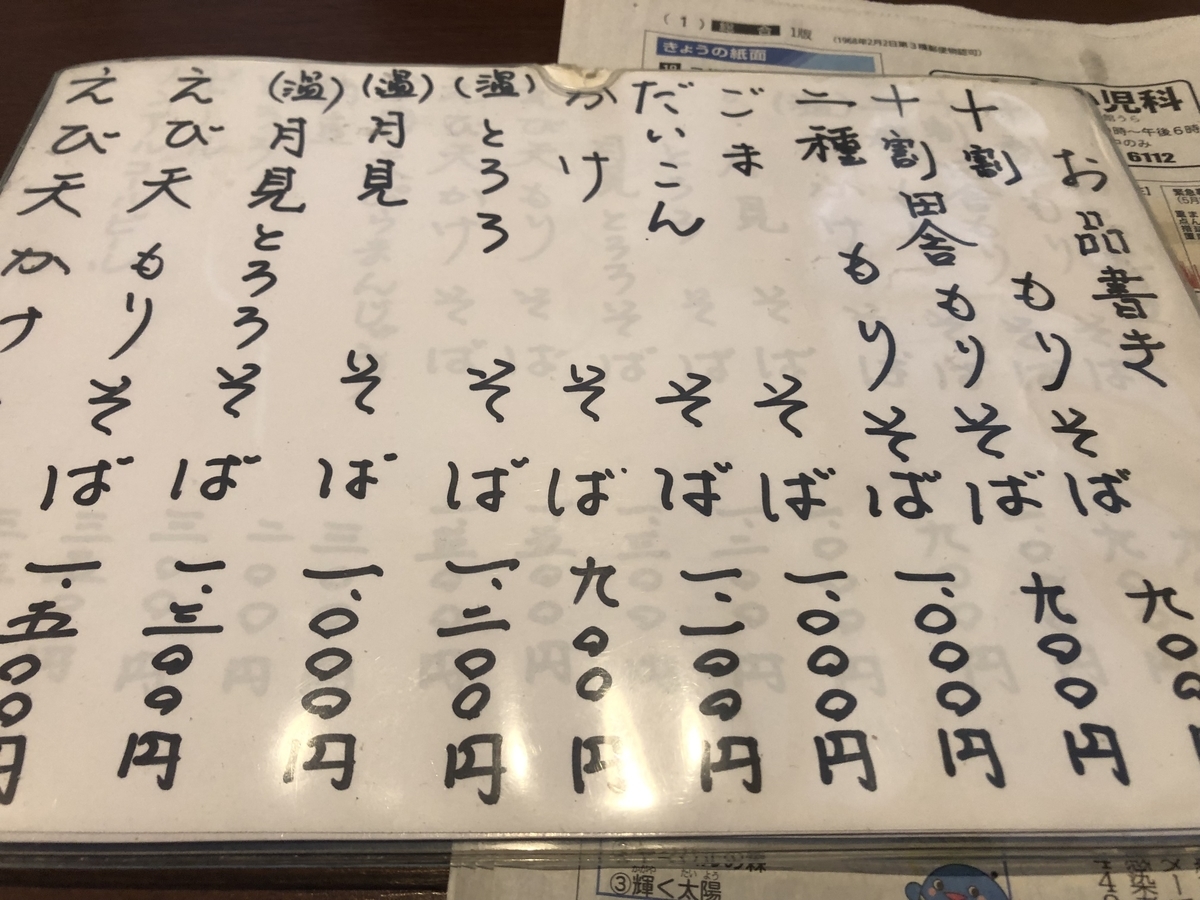 お品書き
十割 もりそば 九〇〇円
十割田舎 もりそば 九〇〇円
二種 もりそば 一、〇〇〇円
ごま そば 一、〇〇〇円
だいこん そば 一、一〇〇円
かけ そば 九〇〇円
(温)とろろ そば 一、二〇〇円
(温)月見 そば 一、〇〇〇円
(温)月見とろろ そば 一、三〇〇円
えび天 もりそば 一、五〇〇円
えび天 かけ
(1) 総合 1版 (1968年2月2日第3種郵便物認可)
きょうの紙面
児科
時〜午後6時
6112
③輝く太陽